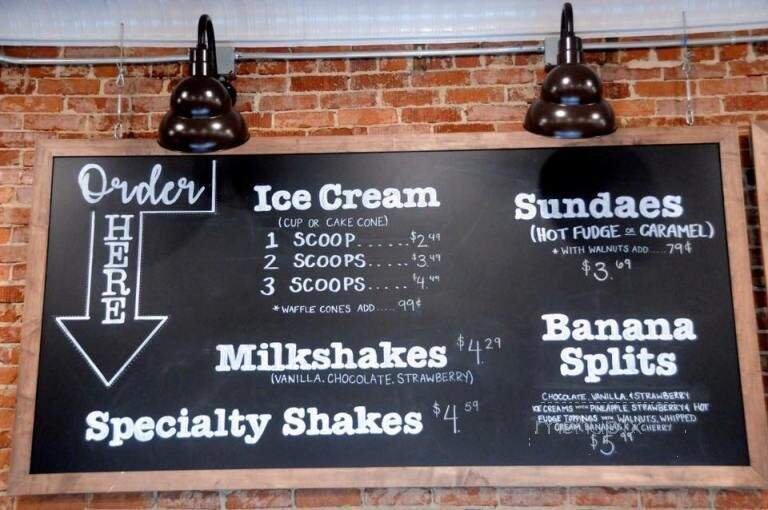 Order
HERE
Ice Cream
(CUP OR CAKE CONE)
1 SCOOP......$2.49
2 SCOOPS.....$3.49
3 SCOOPS.....$4.49
*WAFFLE CONES ADD.....99¢
Milkshakes $4.29
(VANILLA, CHOCOLATE, STRAWBERRY)
Specialty Shakes $4.59
Sundaes
(HOT FUDGE OR CARAMEL)
*WITH WALNUTS ADD....79¢
$3.69
Banana
Splits
CHOCOLATE, VANILLA, & STRAWBERRY
ICE CREAMS WITH PINEAPPLE STRAWBERRY & HOT
FUDGE TOPPINGS WITH WALNUTS, WHIPPED
CREAM, BANANAS, & A CHERRY
$5.99